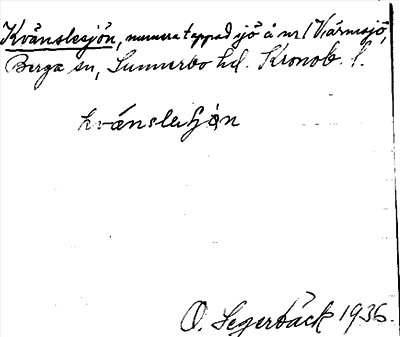 Kvänslesjön, numera tappad sjö å nr 1 Värmsjö,
Berga sn, Sunnerbo hd. Kronob. l.
kvänslasjön
O. Segerbäck 1936.